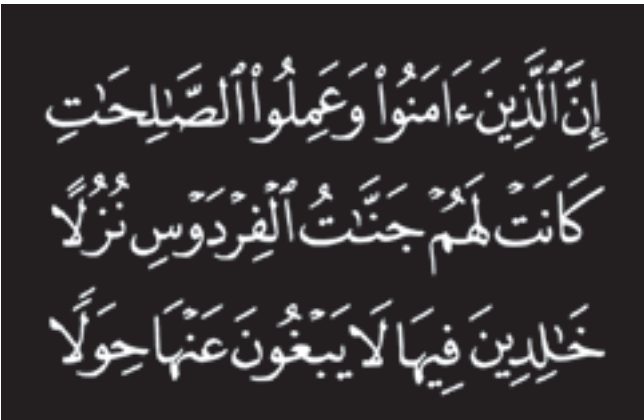 إِنَّ ٱلَّذِينَ ءَامَنُوا۟ وَعَمِلُوا۟ ٱلصَّـٰلِحَـٰتِ
كَانَتْ لَهُمْ جَنَّـٰتُ ٱلْفِرْدَوْسِ نُزُلًا
خَـٰلِدِينَ فِيهَا لَا يَبْغُونَ عَنْهَا حِوَلًا